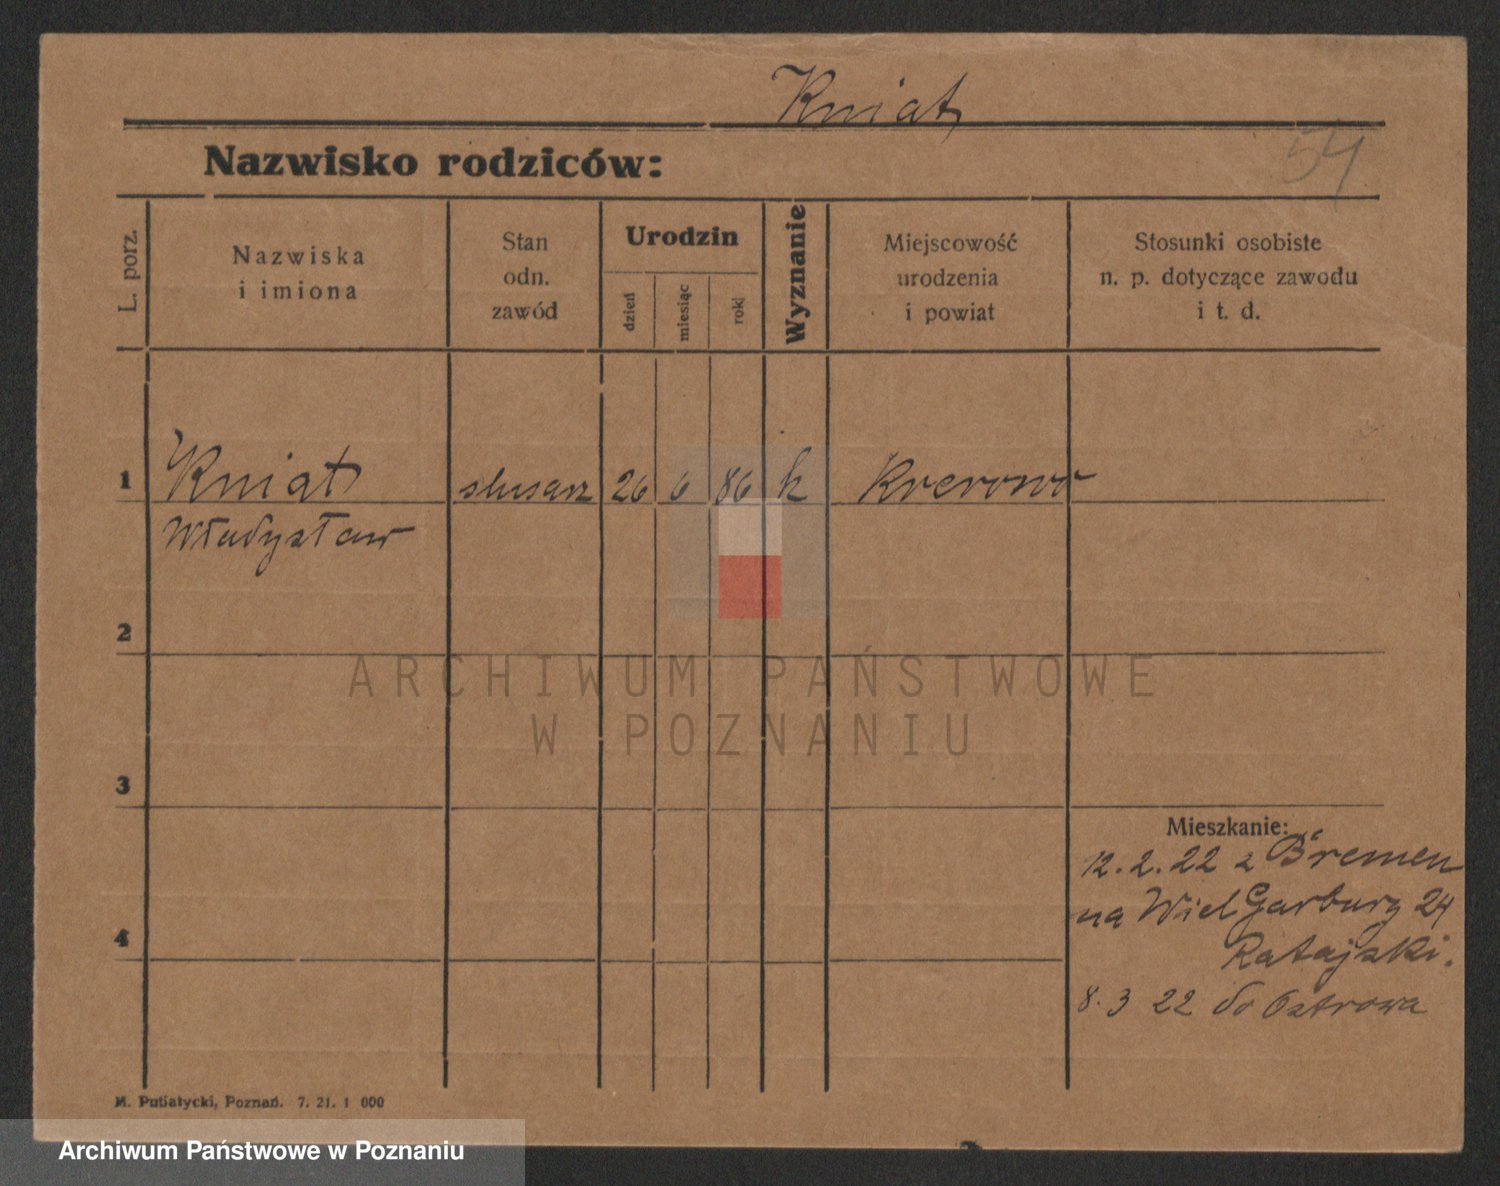 Kniat
Nazwisko rodziców:
54
L. porz.
Nazwiska
i imiona
Stan
odn.
zawód
Urodzin
dzień
miesiąc
rok
Wyznanie
Miejscowość
urodzenia
i powiat
Stosunki osobiste
n. p. dotyczące zawodu
i t. d.
1 Kniat ślusarz 26 6 86 k Krerowo
Władysław
2
ARCHIWUM PAŃSTWOWE
W POZNANIU
3
Mieszkanie:
12.2.22 z Bremen
na Wiel Garbary 24
Ratajski.
4
8.3 22 do Ostrowa
M. Putiatycki, Poznań. 7. 21. 1 000
Archiwum Państwowe w Poznaniu